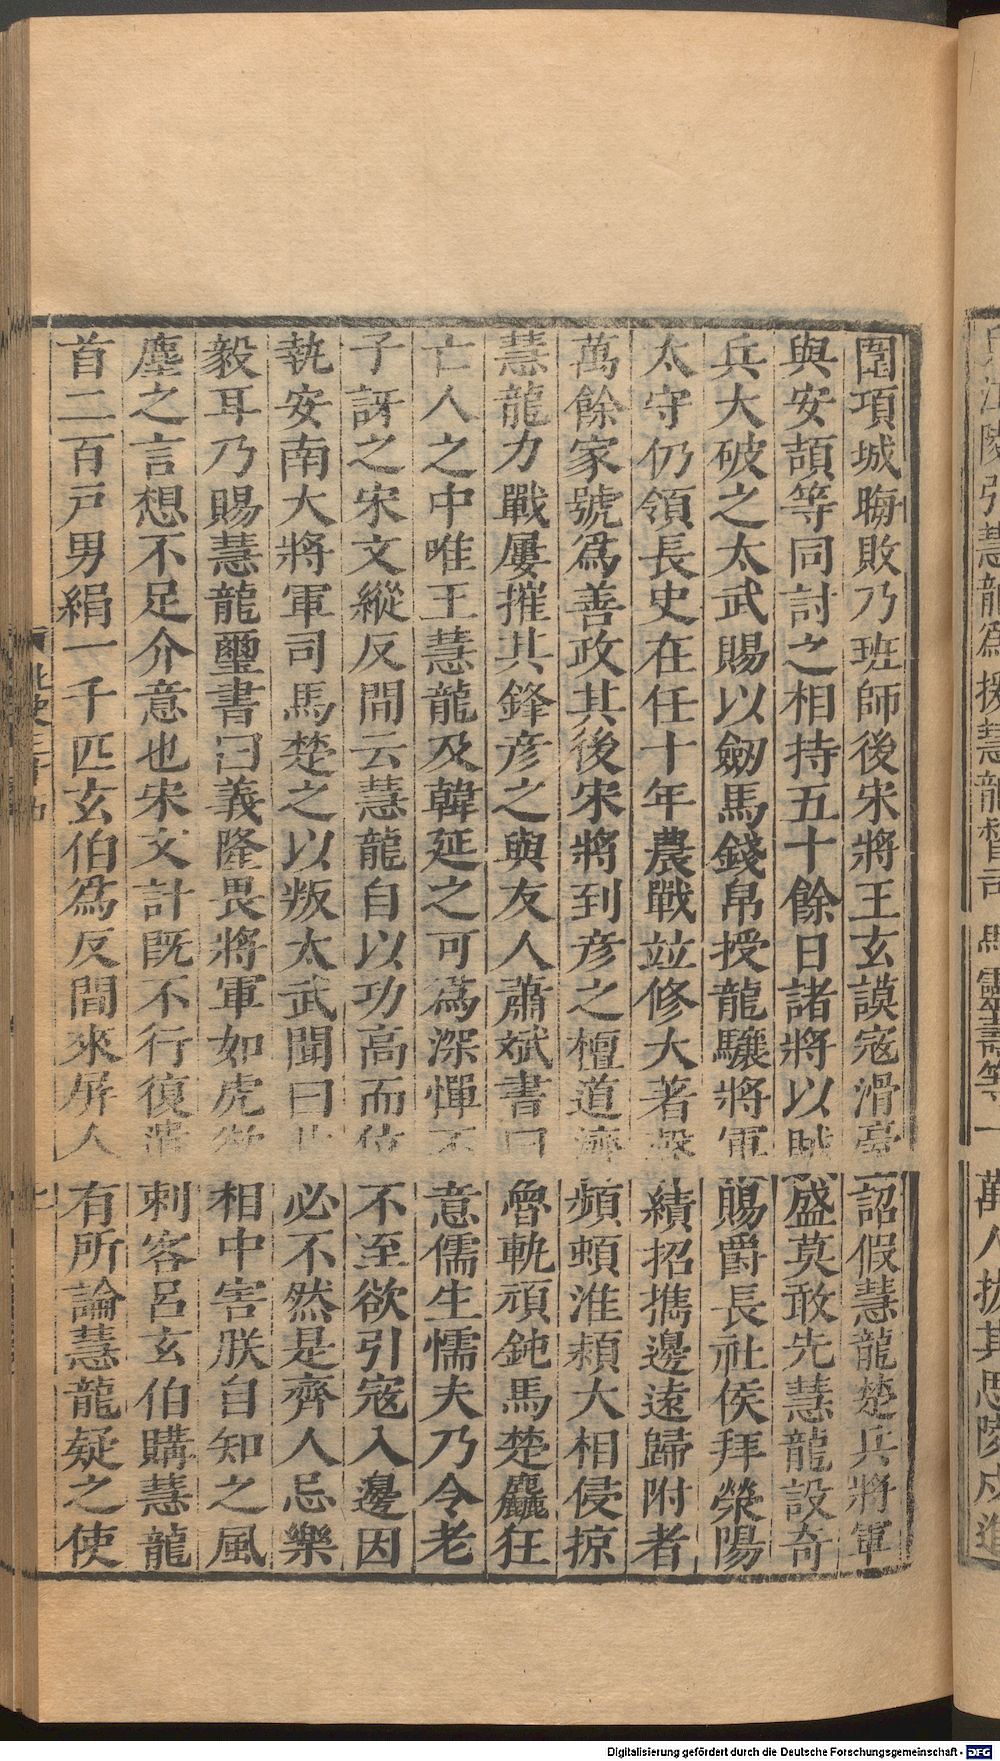 圍項城晦敗乃班師後宋將王玄謨寇滑臺詔假慧龍楚兵將軍
與安頡等同討之相持五十餘日諸將以賊盛莫敢先慧龍設奇
兵大破之太武賜以劒馬錢帛授龍驤將軍賜爵長社侯拜滎陽
太守仍領長史在任十年農戰竝修大著聲績招攜邊遠歸附者
萬餘家號爲善政其後宋將到彦之檀道濟頻頓淮潁大相侵掠
慧龍力戰屢摧其鋒彦之與友人蕭斌書曰魯軌頑鈍馬楚麤狂
亡人之中唯王慧龍及韓延之可爲深憚不意儒生懦夫乃令老
子訝之宋文縱反間云慧龍自以功高而位不至欲引寇入邊因
執安南大將軍司馬楚之以叛太武聞曰此必不然是齊人忌樂
毅耳乃賜慧龍璽書曰義隆畏將軍如虎欲相中害朕自知之風
塵之言想不足介意也宋文計旣不行復遣刺客呂玄伯購慧龍
首二百戸男絹一千匹玄伯爲反間來屏人有所論慧龍疑之使
七
Digitalisierung gefördert durch die Deutsche Forschungsgemeinschaft - DFG